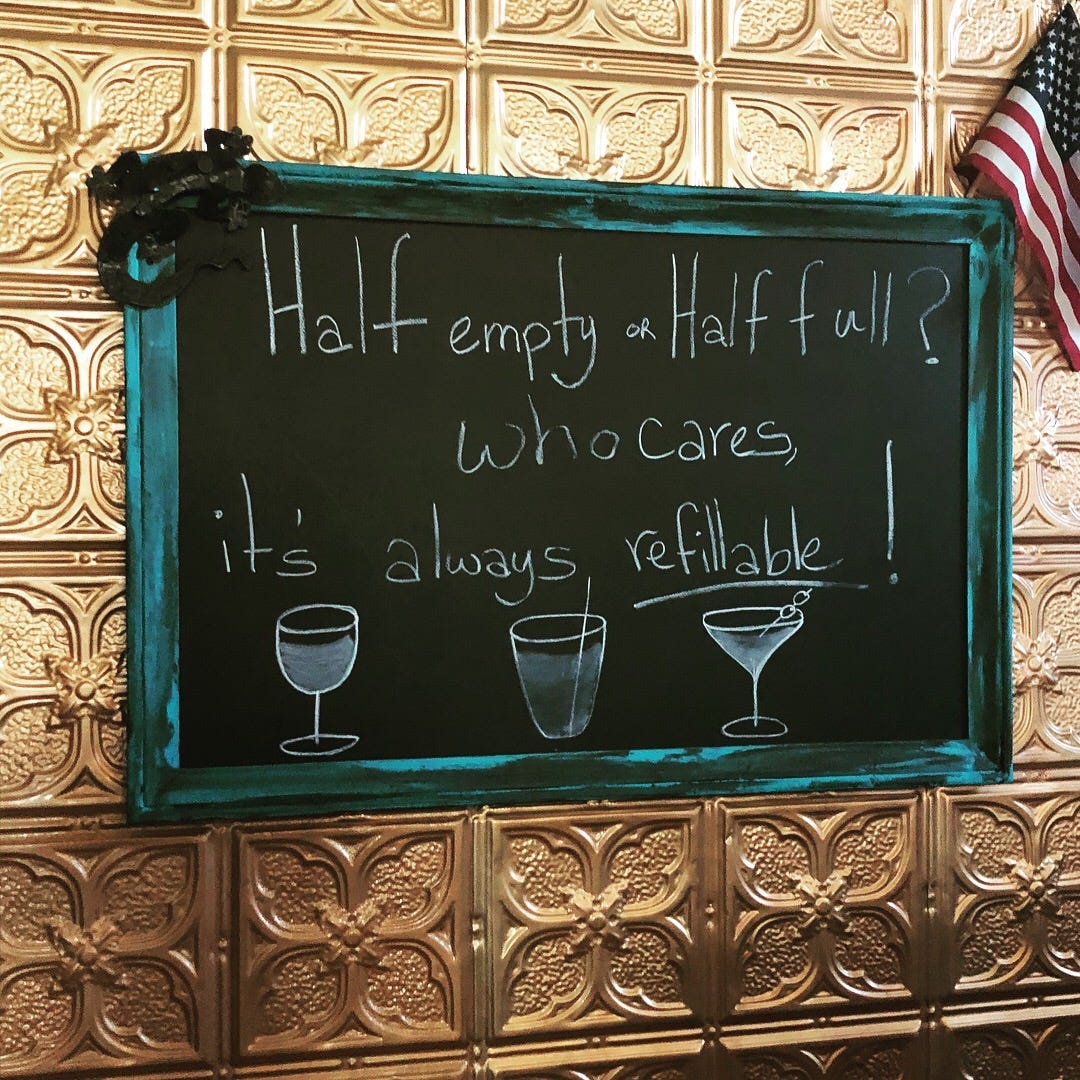 Half empty OR Half full?
who cares,
it's always refillable!